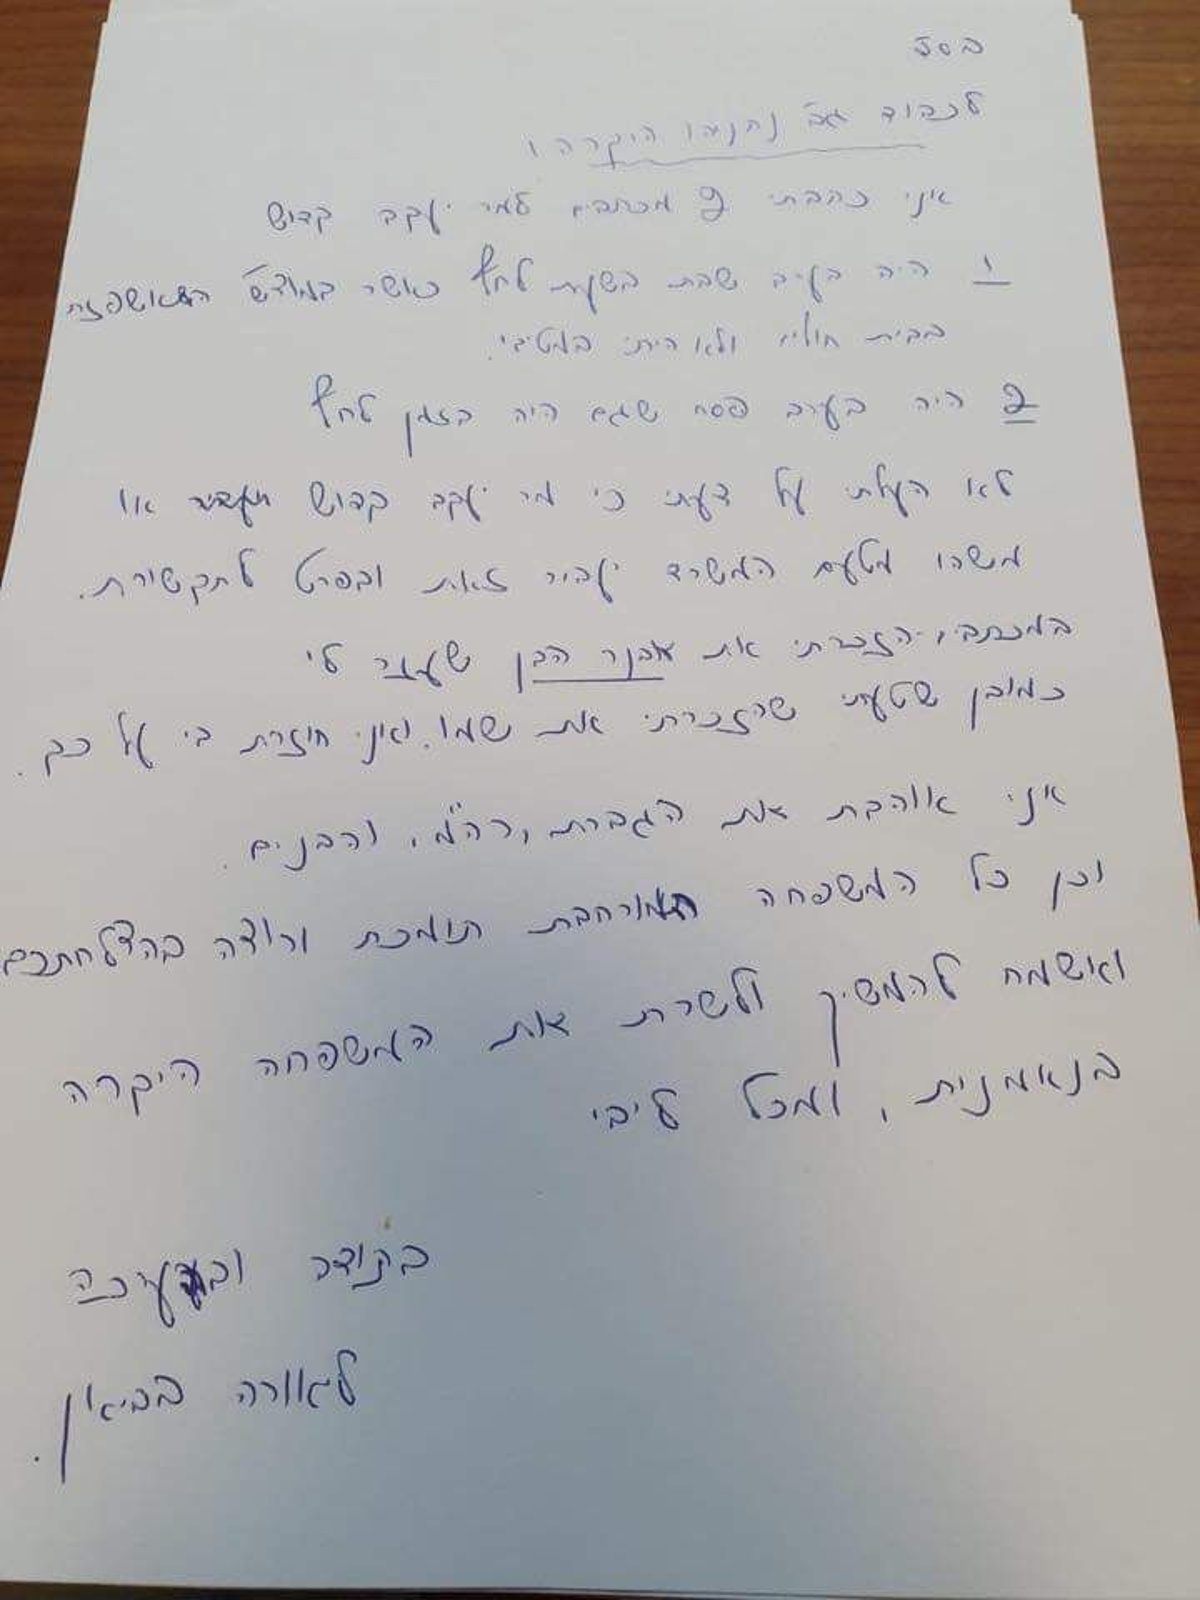 בסד
לכבוד גב' נתניהו היקרה,
אני כתבתי 2 מכתבים למר יעקב קדוש
1 היה בערב שבת בשעת לחץ כאשר במוצ"ש התאשפזתי
בבית חולים ולא הייתי במיטבי.
2 היה בערב פסח שגם היה בזמן לחץ
לא העלתי על דעתי כי מר יעקב קדוש או
משהו מטעם המשרד יעביר זאת ובפרט לתקשורת.
במכתבי, הזכרתי את אבנר הבן שעזר לי
כמובן שטעתי שהזכרתי את שמו. ואני חוזרת בי על כך.
אני אוהבת את הגברת, רה"מ, והבנים.
וכן כל המשפחה המורחבת תומכת ורוצה בהצלחתכם
ואשמח להמשיך ולשרת את המשפחה היקרה
בנאמנות, ומכל ליבי
בתודה ובהערכה
לאורה בביאן.